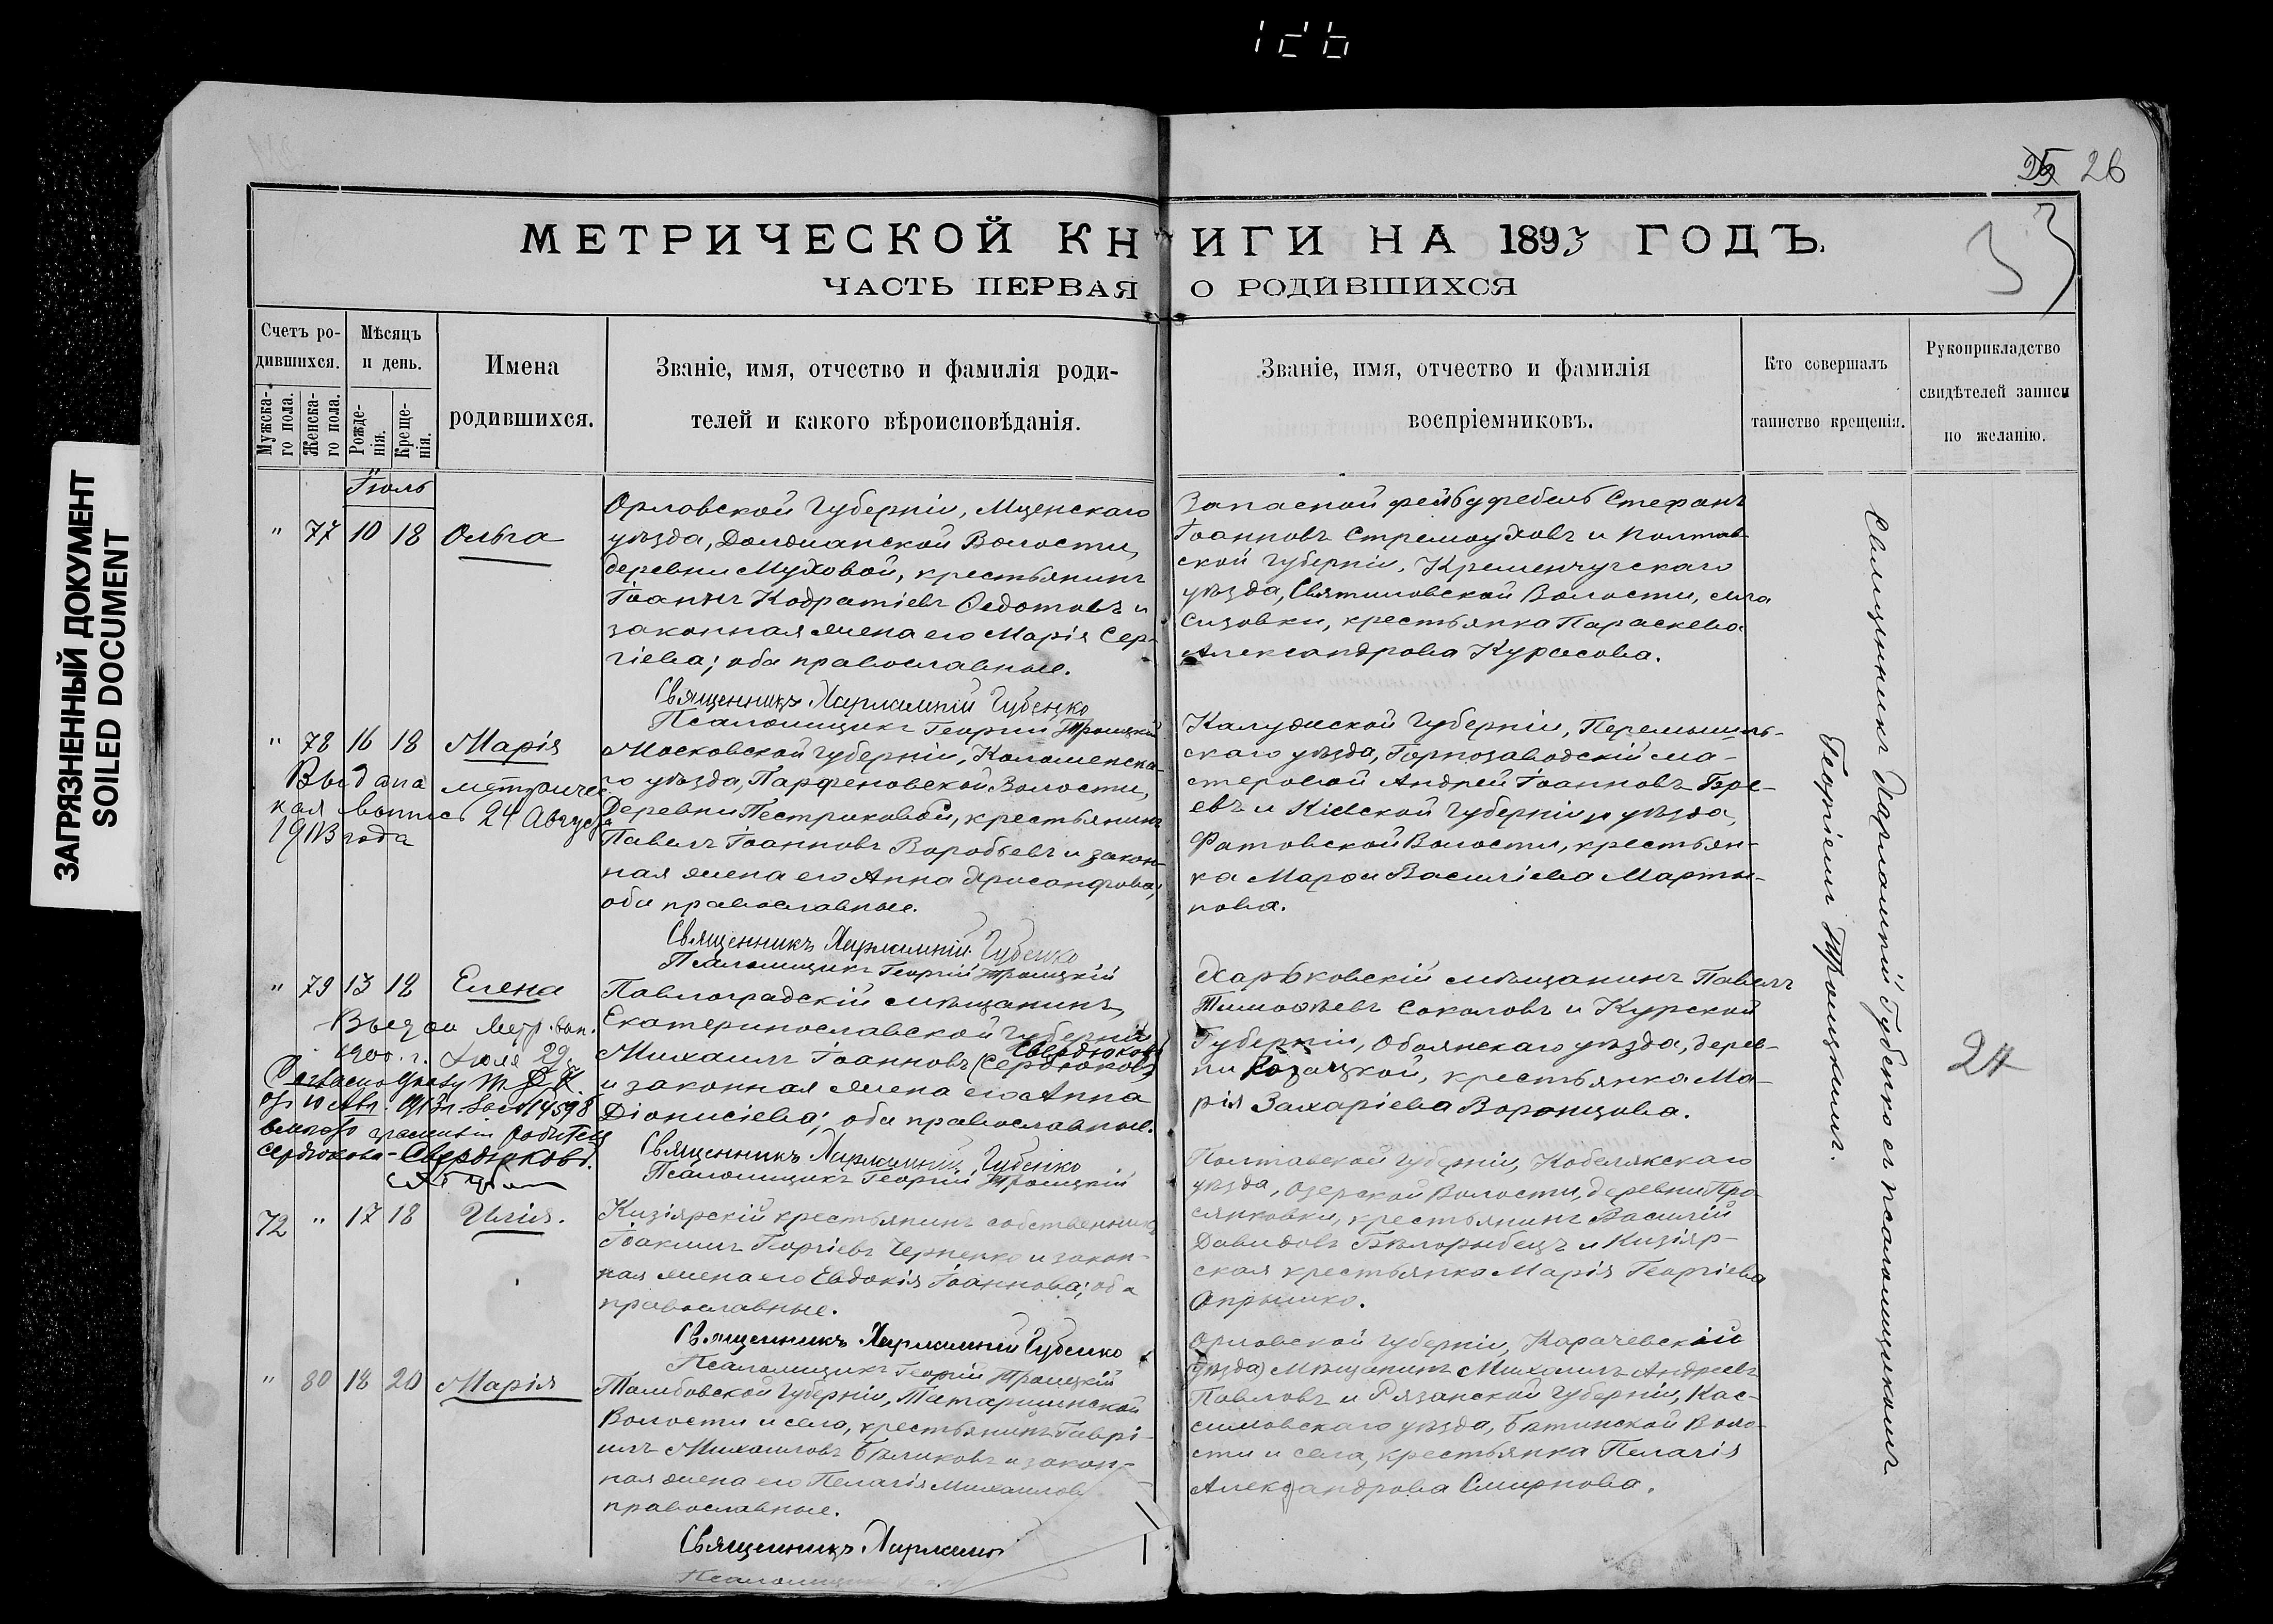 ЗАГРЯЗНЕННЫЙ ДОКУМЕНТ
SOILED DOCUMENT
26
33
МЕТРИЧЕСКОЙ КНИГИ НА 1893 ГОДЪ.
ЧАСТЬ ПЕРВАЯ О РОДИВШИХСЯ
Счетъ ро-
дившихся.
Мужска-
го пола.
Женска-
го пола.
Мѣсяцъ
и день.
Рожде-
нія.
Креще-
нія.
Имена
родившихся.
Званіе, имя, отчество и фамилія роди-
телей и какого вѣроисповѣданія.
Званіе, имя, отчество и фамилія
воспріемниковъ.
Кто совершалъ
таинство крещенія.
Рукоприкладство
свидѣтелей записи
по желанію.
Іюль
" 77 10 18 Ольга
Орловской Губерніи, Мценскаго
уѣзда, Волости,
деревни Муховой, крестьянинъ
Іоаннъ Кодратіевъ Ѳедотовъ и
законная жена его Марія Сер-
гіева; оба православные.
Священникъ Харлампій Губенко
Псаломщикъ Георгій Троицкій
Запасной фельдфебель Стефанъ
Іоанновъ Стремоуховъ и Полтав-
ской Губерніи, Кременчугскаго
уѣзда, Святиловской Волости, села
крестьянка Параскева
Александрова Курасова.
" 78 16 18 Марія
Выдана метричес
кая выпись 24 Августа
1913 года
Московской Губерніи, Коломенска-
го уѣзда, Парфеновской Волости,
Деревни Пестриковой, крестьянинъ
Павелъ Іоанновъ Воробьевъ и закон-
ная жена его Анна
оба православные.
Священникъ Харлампій Губенко
Псаломщикъ Георгій Троицкій
Калужской Губерніи, Перемышль-
скаго уѣзда, Горнозаводскій ма-
стеровой Андрей Іоанновъ
евъ и Кіевской Губерніи и уѣзда,
Волости, крестьян-
ка Марѳа Василіева Марты-
нова.
" 79 13 18 Елена
Выдан метр. вып.
1900 г. Іюля 29
Согласно Указу
от 10 Авг. 1913 г. за № 14598
фамилія родителя
Сердюкова - Свердюковъ.
Павлоградскій мѣщанинъ,
Екатеринославской Губерніи
Свердюковъ
Михаилъ Іоанновъ (Сердюковъ)
и законная жена его Анна
Діонисіева; оба православные.
Священникъ Харлампій Губенко
Псаломщикъ Георгій Троицкій
Харьковскій мѣщанинъ Павелъ
Тимоѳеевъ Соколовъ и Курской
Губерніи, Обоянскаго уѣзда, дерев-
ни Козацкой, крестьянка Ма-
рія Захаріева Воронцова.
72 " 17 18 Илія.
Кизіярскій крестьянинъ собственникъ
Іоакимъ Георгіевъ Черненко и закон-
ная жена его Евдокія Іоаннова; оба
православные.
Священникъ Харлампій Губенко
Псаломщикъ Георгій Троицкій
Полтавской Губерніи, Кобелякскаго
уѣзда, Озерской Волости, деревни Про-
сянковки, крестьянинъ Василій
Давидовъ Бѣлорыбецъ и Кизіяр-
ская крестьянка Марія Георгіева
Опрышко.
" 80 18 20 Марія
Тамбовской Губерніи,
Волости и села, крестьянинъ Гаврі-
илъ Михаиловъ Бѣликовъ и закон-
ная жена его Пелагія Михаилова
православные.
Священникъ Харламп
Псаломщ
Орловской Губерніи, Карачевскій
(уѣзда) мѣщанинъ Михаилъ Андреевъ
Павловъ и Рязанской Губерніи, Кас-
симовскаго уѣзда, Бетинской Воло-
сти и села, крестьянка Пелагія
Александрова Смирнова.
Священникъ Харлампій Губенко съ псаломщикомъ
Георгіемъ Троицкимъ.
24